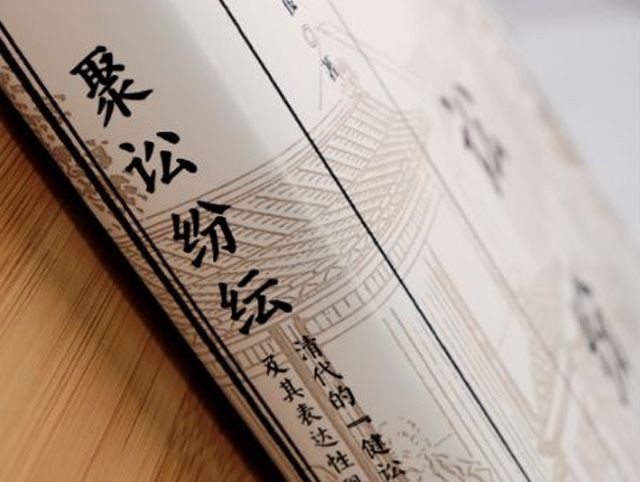 聚讼纷纭
清代的「健讼
及其表达性
著
讼